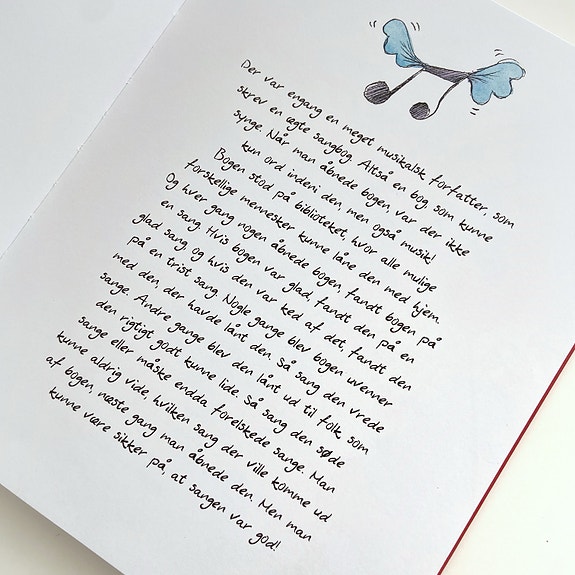 Der var engang en meget musikalsk forfatter, som
skrev en ægte sangbog. Altså en bog, som kunne
synge. Når man åbnede bogen, var der ikke
kun ord indeni den, men også musik!
Bogen stod på biblioteket, hvor alle mulige
forskellige mennesker kunne låne den med hjem.
Og hver gang nogen åbnede bogen, fandt bogen på
en sang. Hvis bogen var glad, fandt den på en
glad sang, og hvis den var ked af det, fandt den
på en trist sang. Nogle gange blev bogen uvenner
med den, der havde lånt den. Så sang den vrede
sange. Andre gange blev den lånt ud til folk som
den rigtigt godt kunne lide. Så sang den søde
sange eller måske endda forelskede sange. Man
kunne aldrig vide, hvilken sang der ville komme ud
af bogen, næste gang man åbnede den. Men man
kunne være sikker på, at sangen var god!